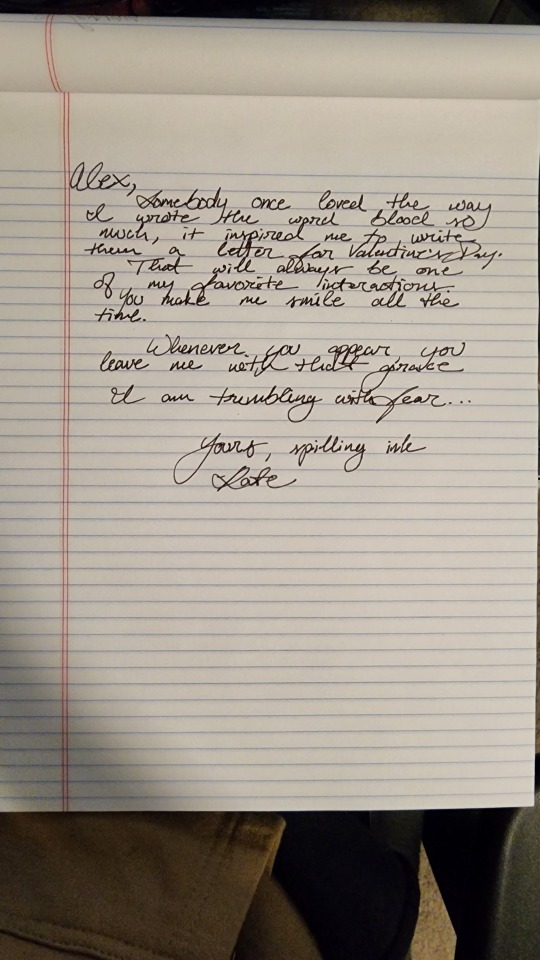 Alex,
Somebody once loved the way
I wrote the word blood so
much, it inspired me to write
them a letter for Valentine's Day.
That will always be one
of my favorite interactions.
You make me smile all the
time.
Whenever you appear you
leave me with that
I am trembling with fear...
Yours, spilling ink